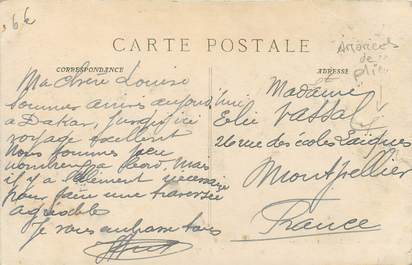 6€
Amorces
de
pli
CARTE POSTALE
CORRESPONDANCE
ADRESSE
Ma chère Louise
Sommes arrivés aujourd'hui
a Dakar, jusqu'ici
voyage excellent
Nous sommes peu
nombreux à bord, mais
il y a l'élément nécessaire
pour faire une traversée
agréable
Je vous embrasse tous
Madame
Elie Vassal
26 rue des écoles Laïques
Montpellier
France